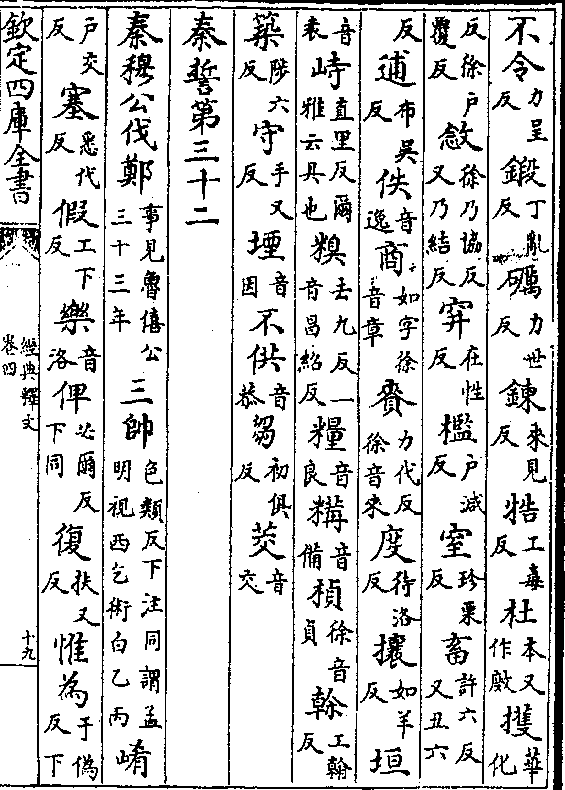 不令力呈反鍛丁亂反礪力世反鍊來見反牿工毒反杜本又作𢾖擭華化
反徐户覆反敜徐乃協反又乃結反穽在性反檻户減反窒珍栗反畜許六反又丑六
反逋布吳反佚音逸商如字徐音章賚力代反徐音來度待洛反攘如羊反垣
音袁峙直里反爾雅云具也糗去九反一音昌紹反糧音良糒音備楨徐音貞榦工翰反
築陟六反守手又反堙音因不供音恭芻初俱反茭音交
秦誓第三十二
秦穆公伐鄭事見魯僖公三十三年三帥色類反下注同謂孟明視西乞術白乙丙崤
户交反塞悉代反假工下反樂音洛俾必爾反下同復扶又反惟為于偽反下
欽定四庫全書
經典釋文
卷四
十九